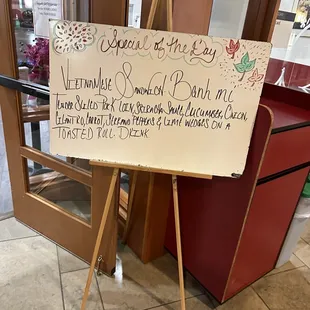 Special of the Day
Vietnamese Sandwich Banh mi
Tender Sliced Pork Loin, Sriracha Sauce, Cucumber, Onion,
Cilantro, Carrot, Jalapeno Peppers & Lime Wedges on a
Toasted Roll. Drink